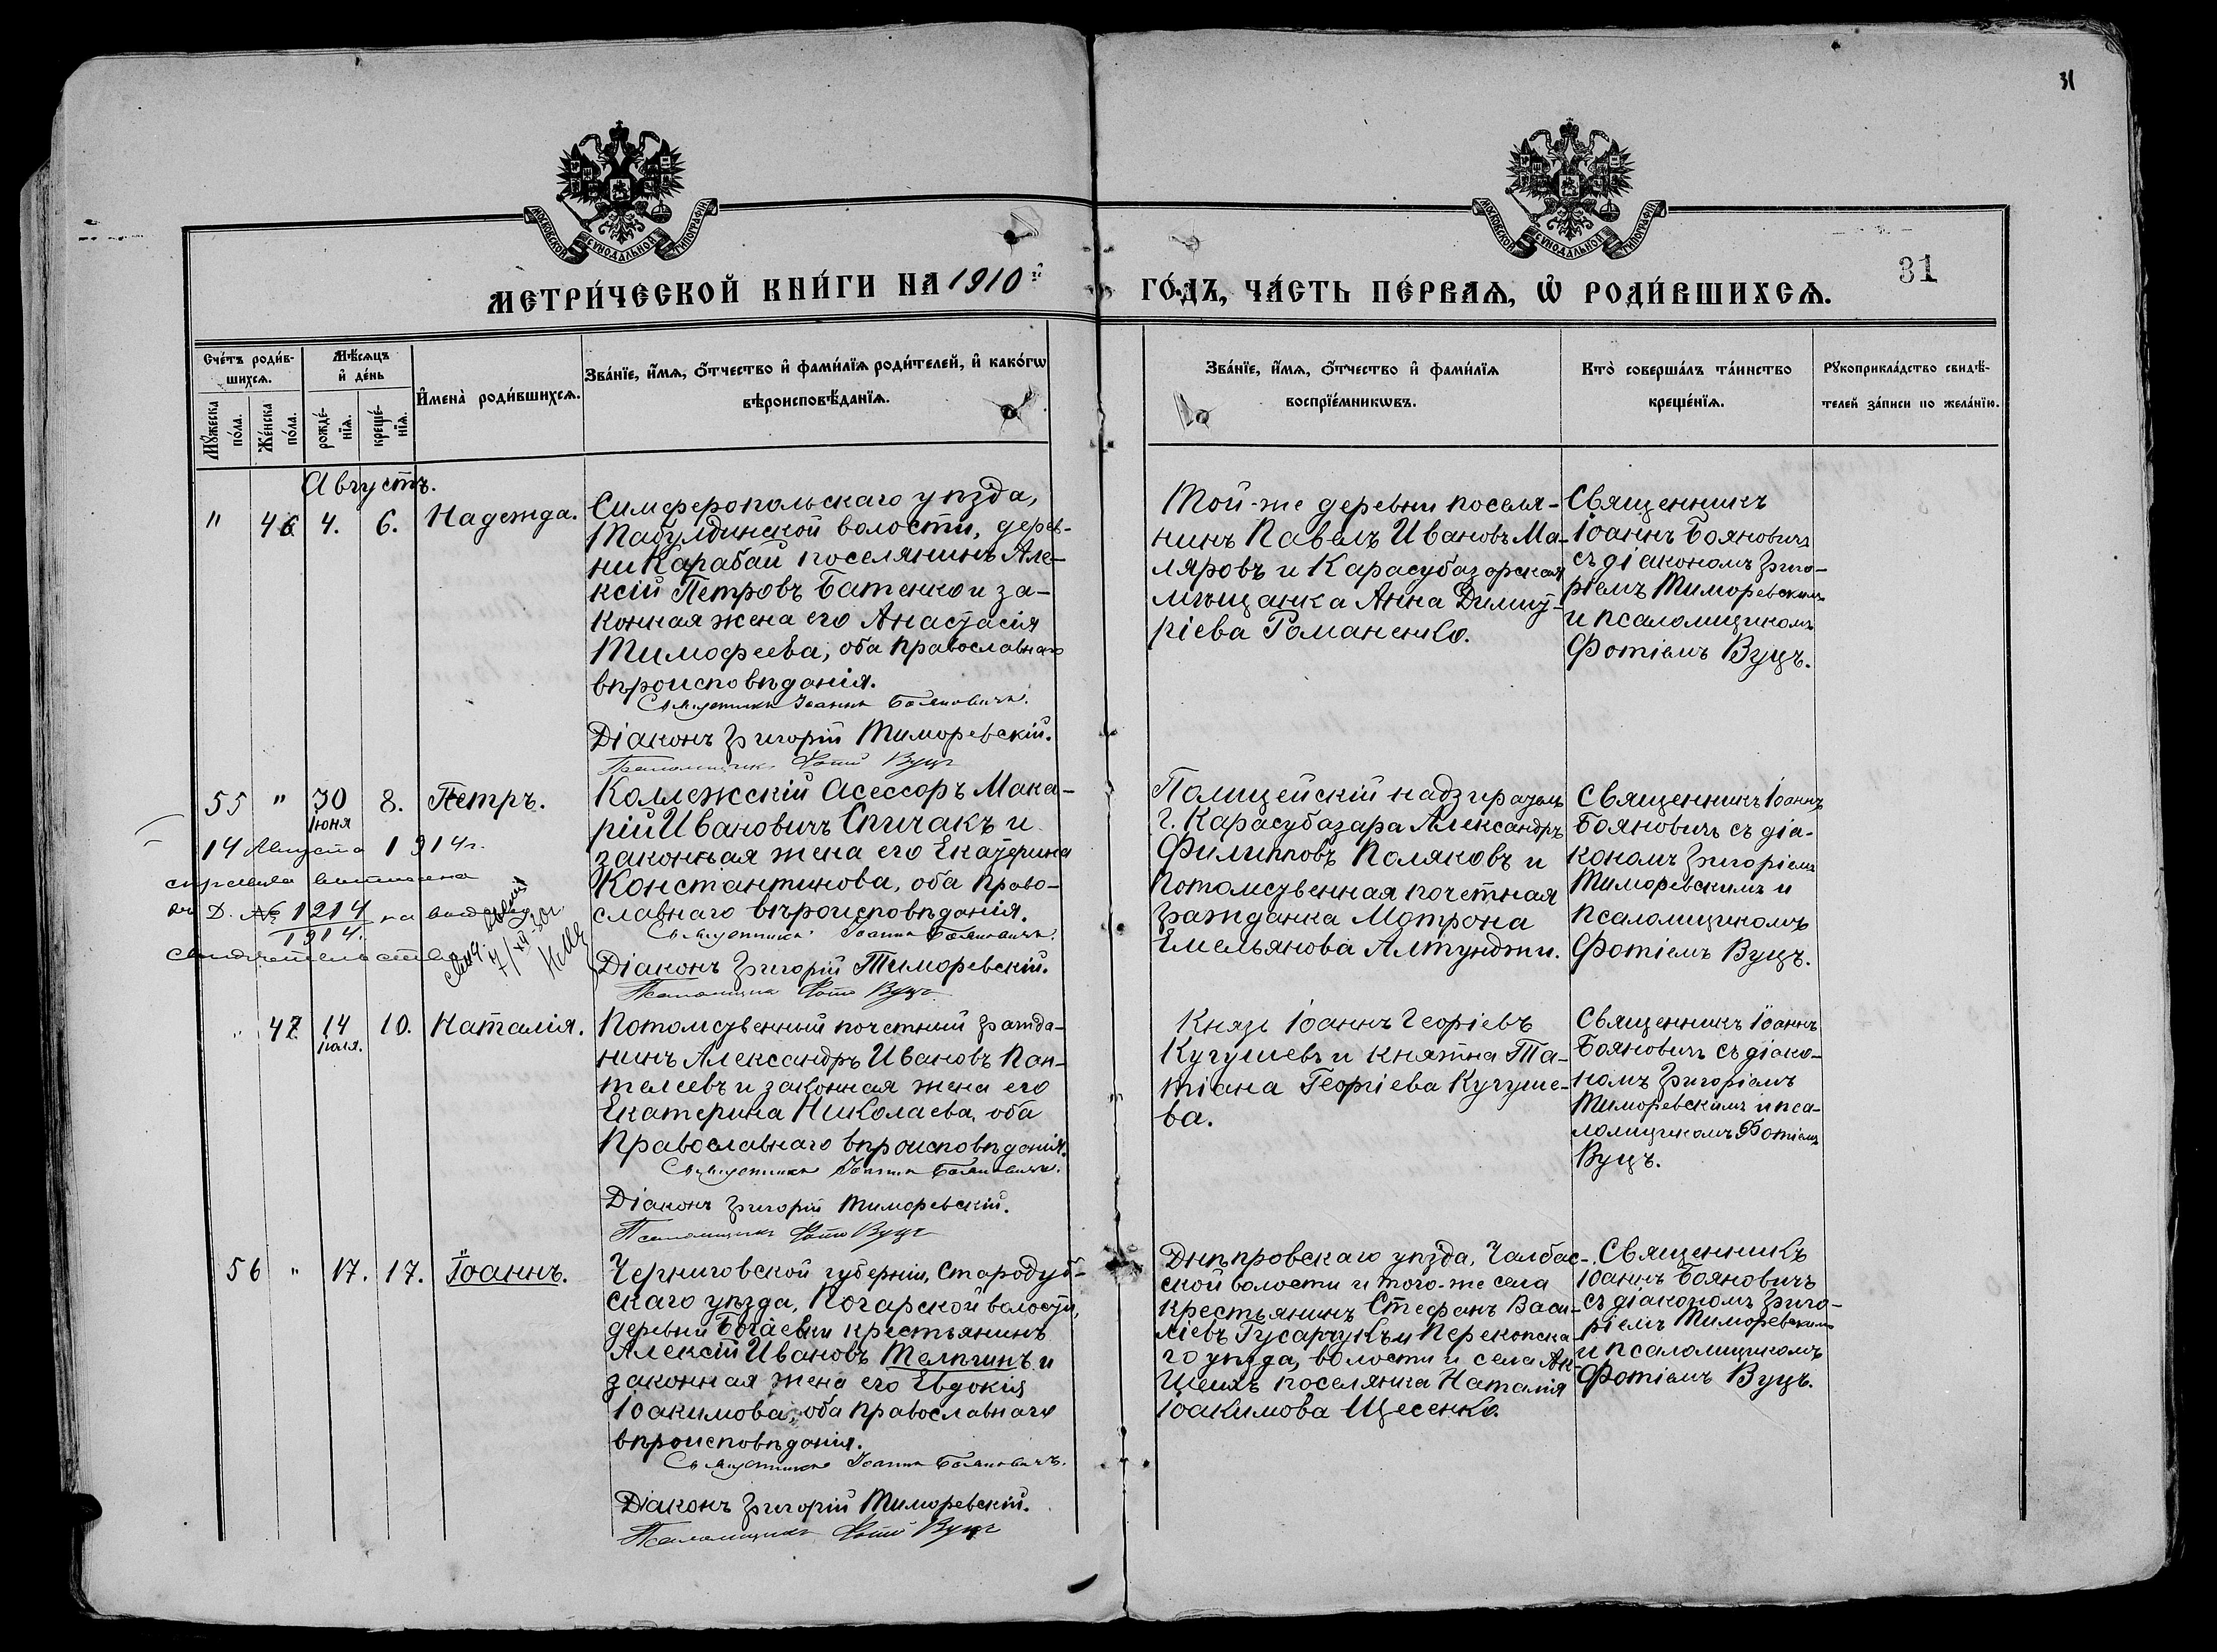 31
МОСКОВСКОЙ СѴНОДАЛЬНОЙ ТИПОГРАФІИ
МОСКОВСКОЙ СѴНОДАЛЬНОЙ ТИПОГРАФІИ
МЕТРИ́ЧЕСКОЙ КНИ́ГИ НА 1910й
ГО́ДЪ, ЧА́СТЬ ПЕ́РВАѦ, Ѡ҆ РОДИ́ВШИХСѦ.
31
Сче́тъ роди́в-
шихсѧ.
Мꙋ́жеска
по́ла.
Же́нска
по́ла.
Мѣ́сѧцъ
и҆ де́нь
рожде́-
нїѧ.
креще́-
нїѧ.
И҆мена̀ роди́вшихсѧ.
Зва́нїе, и҆́мѧ, ѻ҆́тчество и҆ фами́лїѧ роди́телей, и҆ како́гѡ
вѣроисповѣ́данїѧ.
Зва́нїе, и҆́мѧ, ѻ҆́тчество и҆ фами́лїѧ
воспрїе́мникѡвъ.
Кто̀ соверша́лъ та́инство
креще́нїѧ.
Рꙋкоприкла́дство свидѣ́-
телей за́писи по жела́нїю.
Августъ.
" 46 4. 6. Надежда.
Симферопольскаго уѣзда,
Табулдинской волости, дерев-
ни Карабай поселянинъ Але-
ксій Петровъ Батенко и за-
конная жена его Анастасія
Тимофеева, оба православнаго
вѣроисповѣданія.
Священникъ Іоаннъ Бояновичъ.
Діаконъ Григорій Тиморевскій.
Псаломщикъ Фотій Вуцъ
Той-же деревни поселя-
нинъ Павелъ Ивановъ Ма-
ляровъ и Карасубазарская
мѣщанка Анна Димит-
ріева Романенко.
Священникъ
Іоаннъ Бояновичъ
съ діакономъ Григо-
ріемъ Тиморевскимъ
и псаломщикомъ
Фотіемъ Вуцъ.
55 " 30 8. Петръ.
Іюня
14 Августа 1914г.
справка выписана
въ Д. № 1214 на выдачу
1914.
свидѣтельства
Коллежскій Асессоръ Мака-
рій Ивановичъ Спичакъ и
законная жена его Екатерина
Константинова, оба право-
славнаго вѣроисповѣданія.
Священникъ Іоаннъ Бояновичъ.
Діаконъ Григорій Тиморевскій.
Псаломщикъ Фотій Вуцъ
Полицейскій надзиратель
г. Карасубазара Александръ
Филипповъ Поляковъ и
потомственная почетная
гражданка Мотрона
Емельянова Алтунджи.
Священникъ Іоаннъ
Бояновичъ съ діа-
кономъ Григоріемъ
Тиморевскимъ и
псаломщикомъ
Фотіемъ Вуцъ.
" 47 14 10. Наталія.
Іюля.
Потомственный почетный гражда-
нинъ Александръ Ивановъ Пан-
телеевъ и законная жена его
Екатерина Николаева, оба
православнаго вѣроисповѣданія.
Священникъ Іоаннъ Бояновичъ.
Діаконъ Григорій Тиморевскій.
Псаломщикъ Фотій Вуцъ
Князь Іоаннъ Георгіевъ
Кугушевъ и княжна Та-
тіана Георгіева Кугуше-
ва.
Священникъ Іоаннъ
Бояновичъ съ діако-
номъ Григоріемъ
Тиморевскимъ и пса-
ломщикомъ Фотіемъ
Вуцъ.
56 " 17. 17. Іоаннъ.
Черниговской губерніи, Стародуб-
скаго уѣзда, Погарской волости,
деревни Богаевки крестьянинъ
Алексій Ивановъ Телѣгинъ и
законная жена его Евдокія
Іоакимова, оба православнаго
вѣроисповѣданія.
Священникъ Іоаннъ Бояновичъ.
Діаконъ Григорій Тиморевскій.
Псаломщикъ Фотій Вуцъ
Днѣпровскаго уѣзда, Чалбас-
ской волости и того-же села
крестьянинъ Стефанъ Васи-
ліевъ Гусарчукъ и Перекопска-
го уѣзда, волости и села Ак-
Шеихъ поселянка Наталія
Іоакимова Щесенко.
Священникъ
Іоаннъ Бояновичъ
съ діакономъ Григо-
ріемъ Тиморевскимъ
и псаломщикомъ
Фотіемъ Вуцъ.